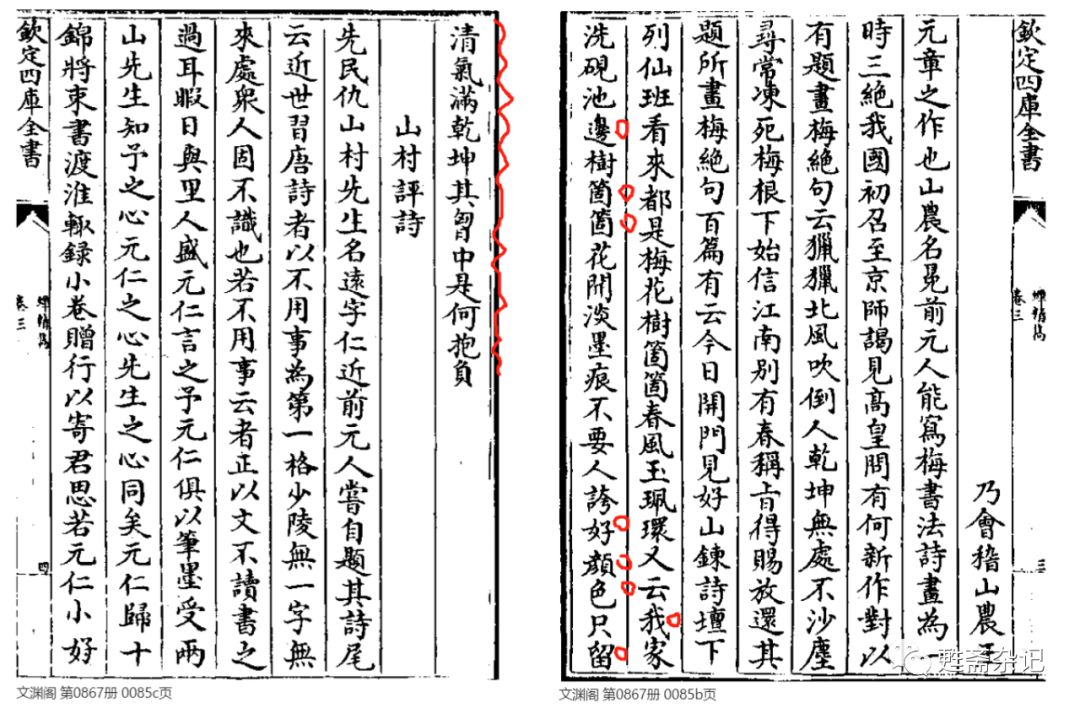 欽定四庫全書
蟫精雋
卷三
三
乃會稽山農王
元章之作也山農名冕前元人能寫梅書法詩畫為一
時三絶我國初召至京師謁見髙皇問有何新作對以
有題畫梅絶句云獵獵北風吹倒人乾坤無處不沙塵
尋常凍死梅根下始信江南别有春稱㫖得賜放還其
題所畫梅絶句百篇有云今日開門見好山鍊詩壇下
列仙班看來都是梅花樹箇箇春風玉珮環又云我家
洗硯池邊樹箇箇花開淡墨痕不要人誇好顔色只留
文渊阁 第0867册 0085b页
清氣滿乾坤其胷中是何抱負
山村評詩
先民仇山村先生名逺字仁近前元人嘗自題其詩尾
云近世習唐詩者以不用事為第一格少陵無一字無
來處衆人固不識也若不用事云者正以文不讀書之
過耳暇日與里人盛元仁言之予元仁俱以筆墨受兩
山先生知予之心元仁之心先生之心同矣元仁歸十
錦將束書渡淮輙録小卷贈行以寄君思若元仁小好
欽定四庫全書
蟫精雋
卷三
四
文渊阁 第0867册 0085c页
甦斋杂记